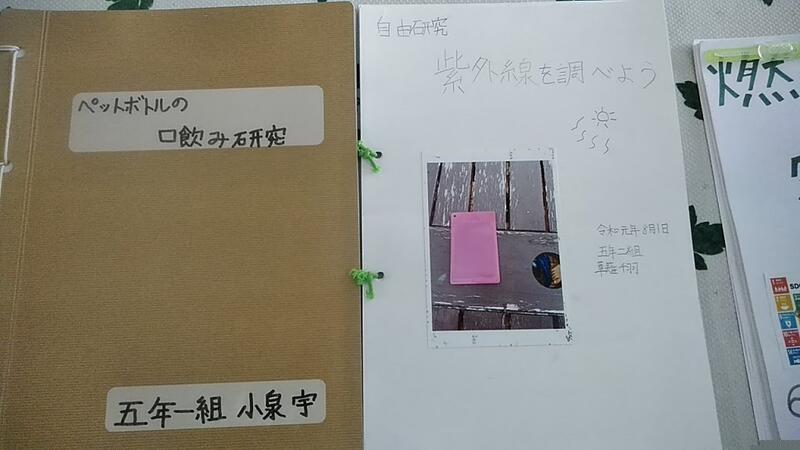 ペットボトルの
口飲み研究
五年一組 小泉宇
自由研究
紫外線を調べよう
令和元年8月1日
五年二組
燃
SD